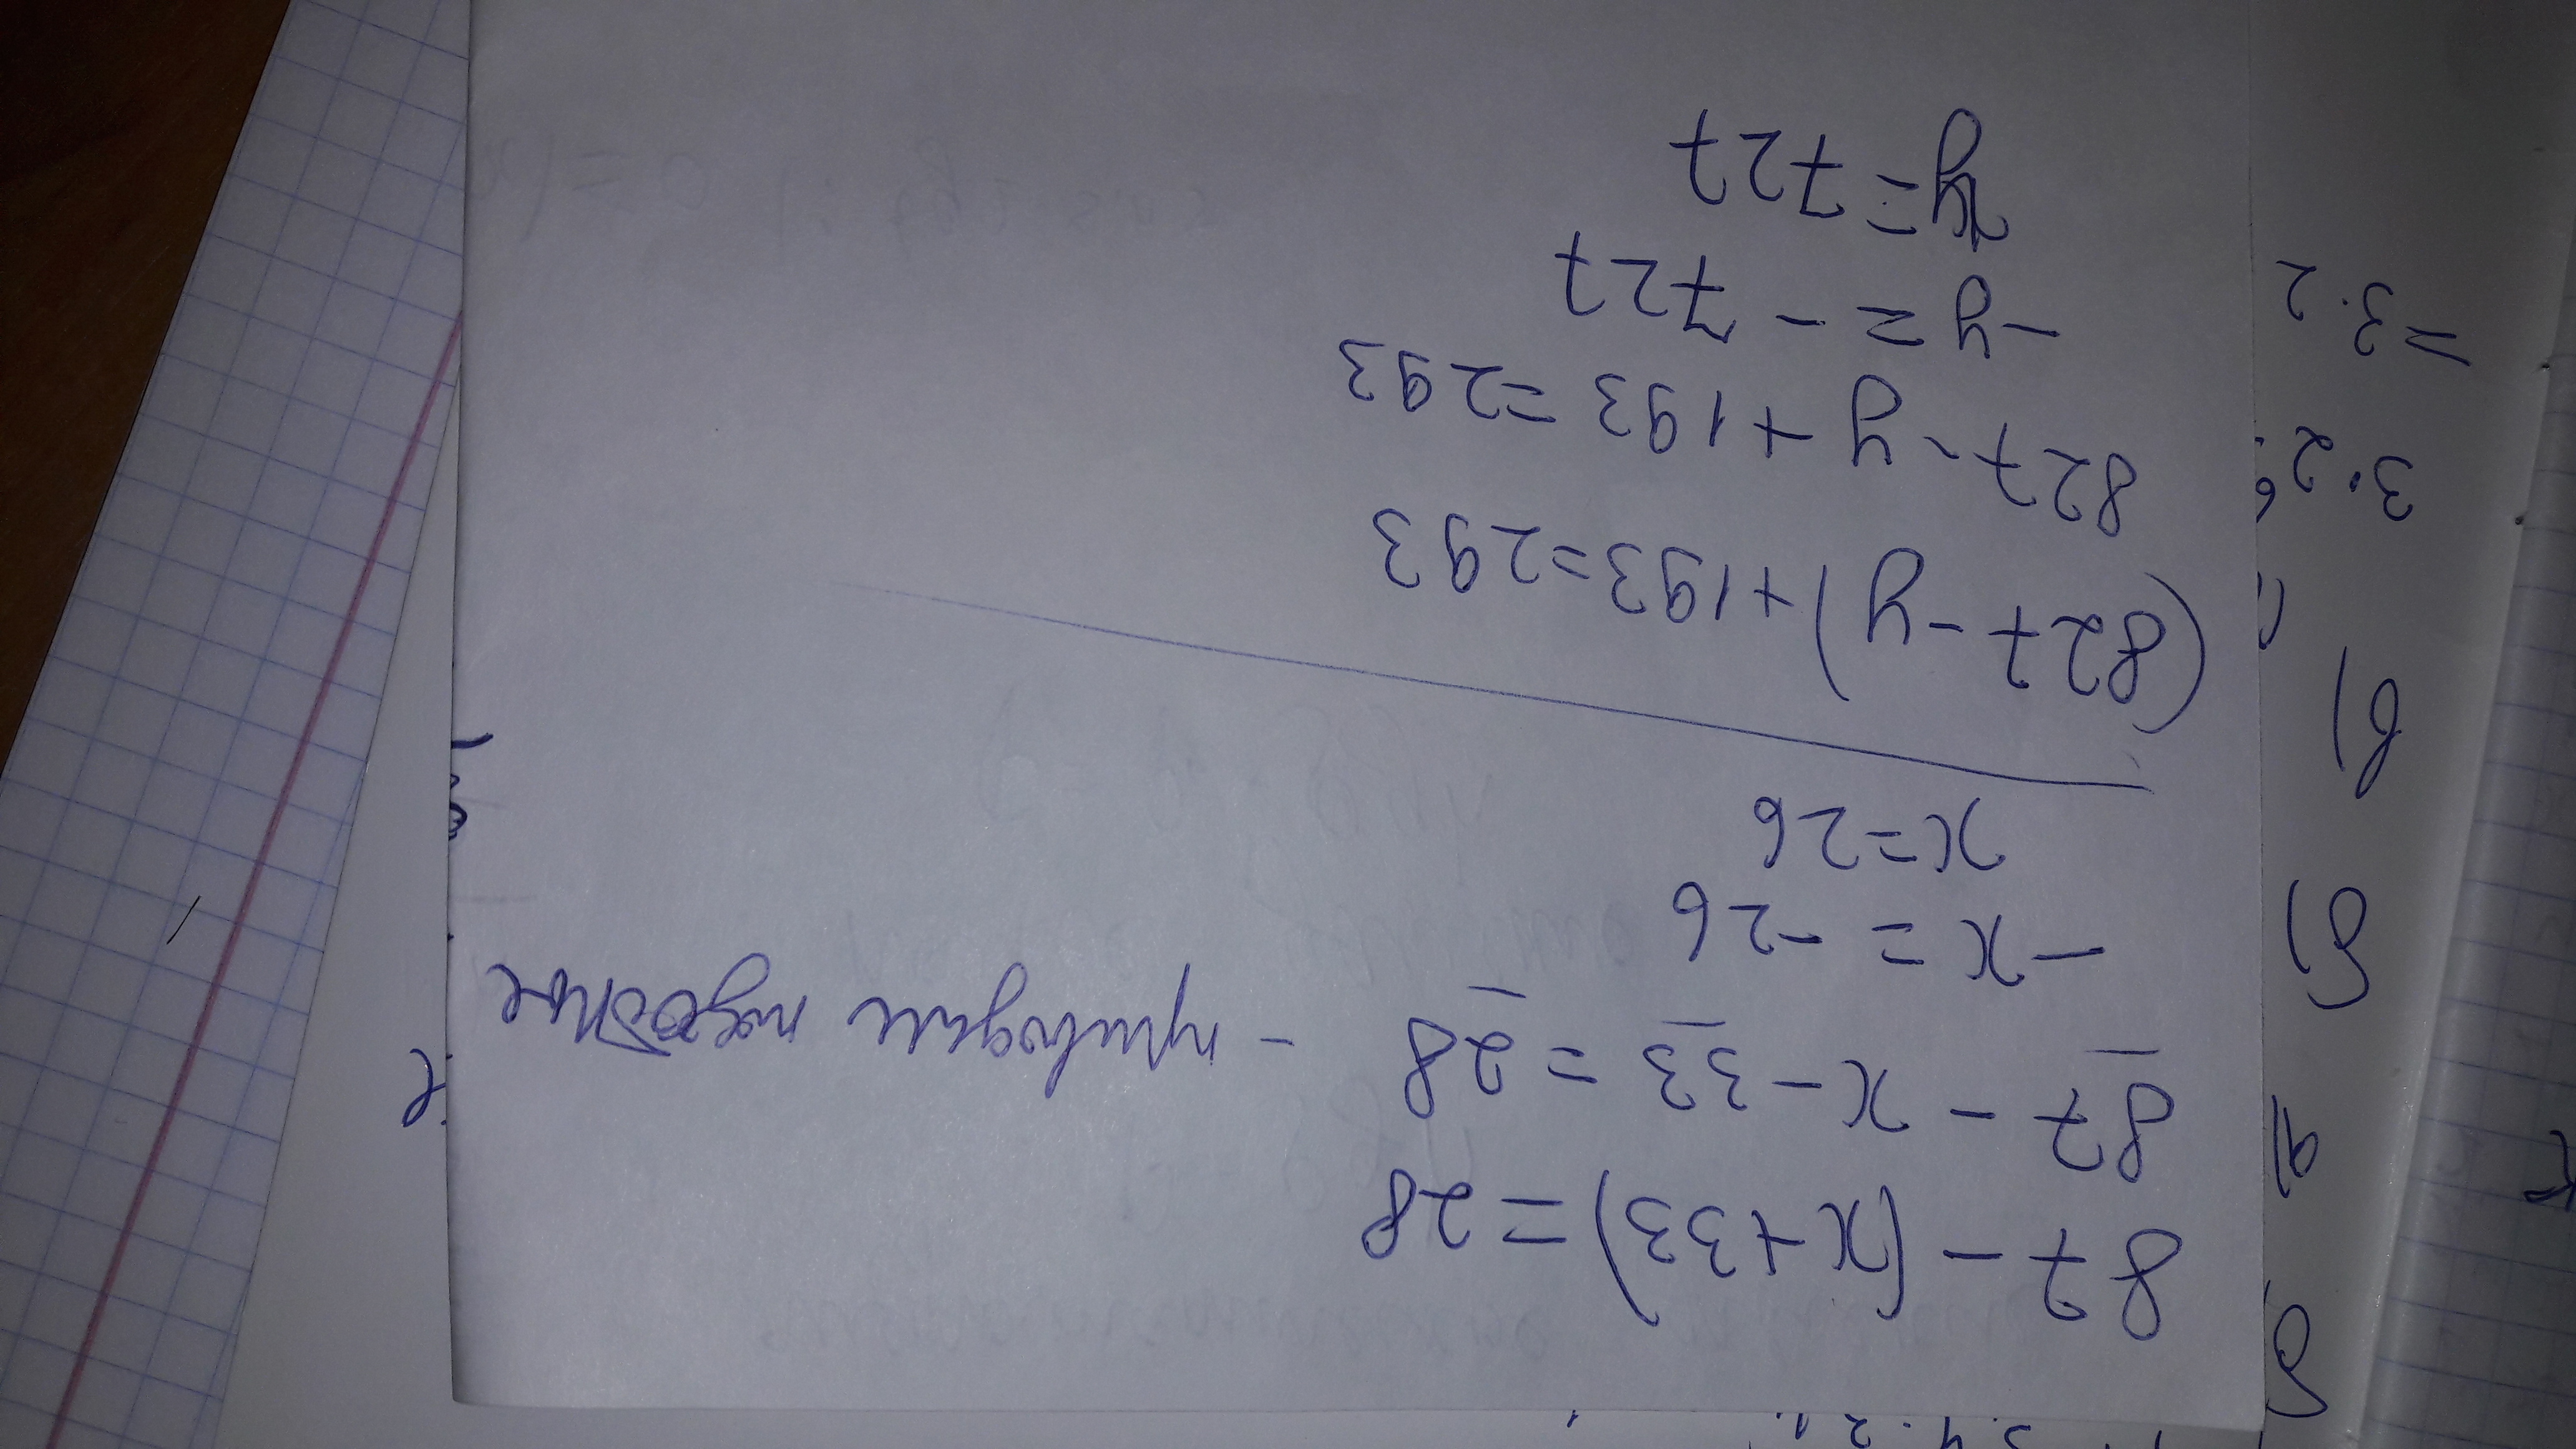 87 - (x+33) = 28
87 - x - 33 = 28 - приводим подобные
- x = -26
x = 26
(827 - y) + 193 = 293
827 - y + 193 = 293
- y = - 727
y = 727
б)
в)
3 · 2
= 3 · 2